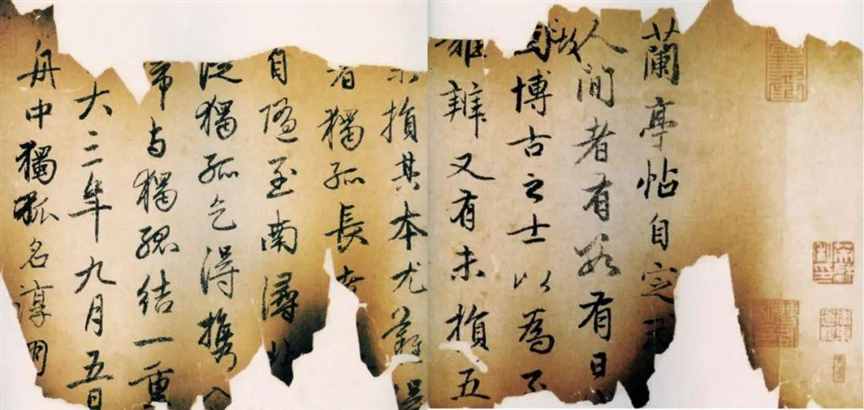 蘭亭帖自定
人間者有數有日
博古之士以為
難辨又有未損五
損其本尤難得
者獨孤長
自隨至南潯
從獨孤乞得攜入
與獨孤結一重
大三年九月五日
舟中獨孤名淳朋